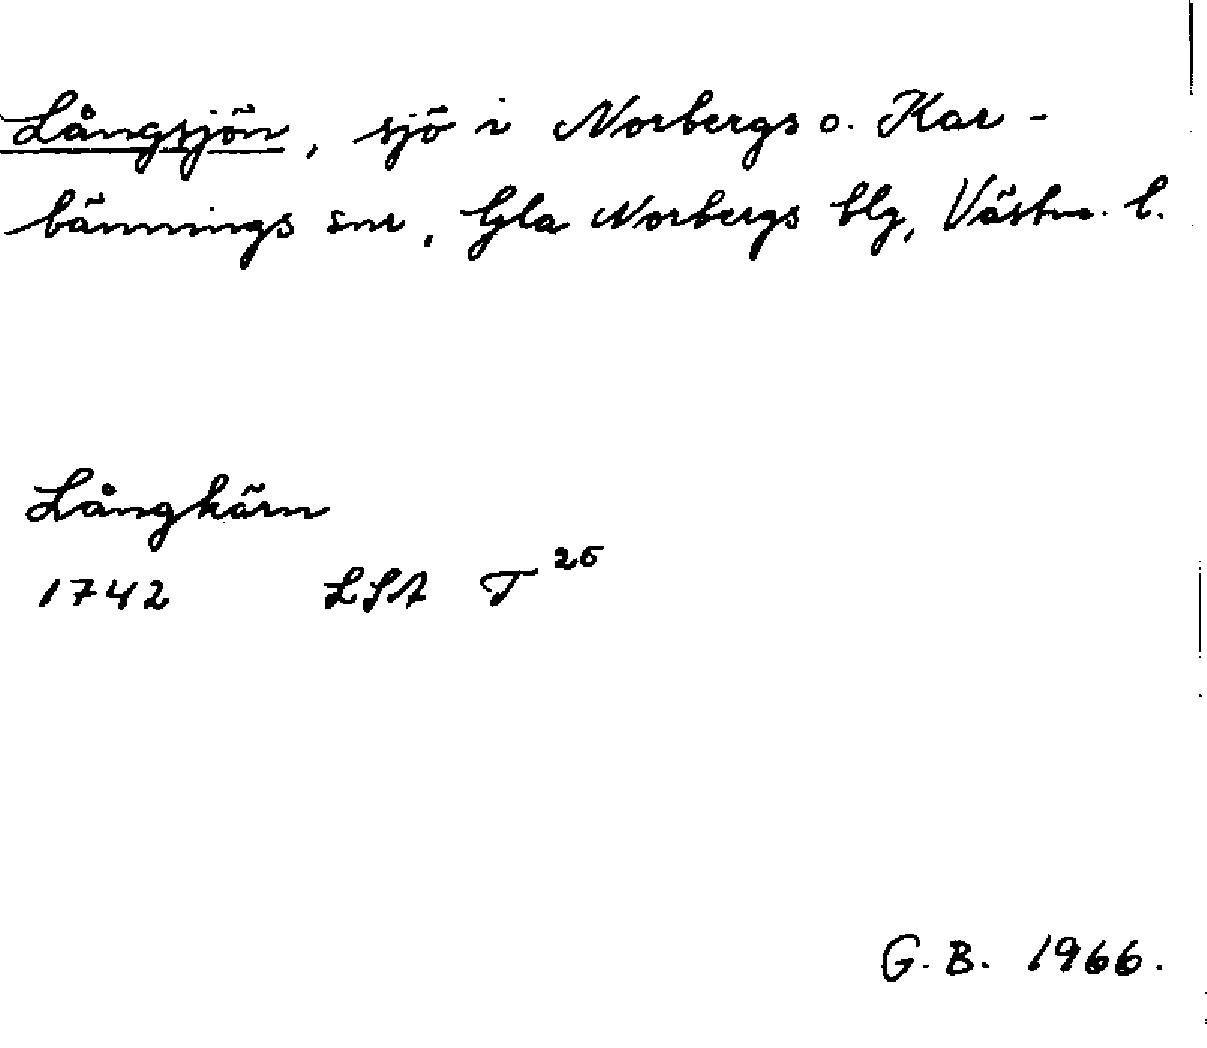 Långsjön, sjö i Norbergs o. Kar-
bännings snr, Gla Norbergs blg, Västm. l.
Långkärn
1742 LSA T 26
G. B. 1966.